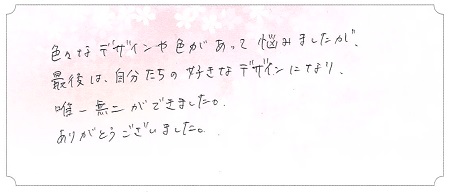 色々なデザインや色があって悩みましたが、
最後は、自分たちの好きなデザインになり、
唯一無二ができました。
ありがとうございました。